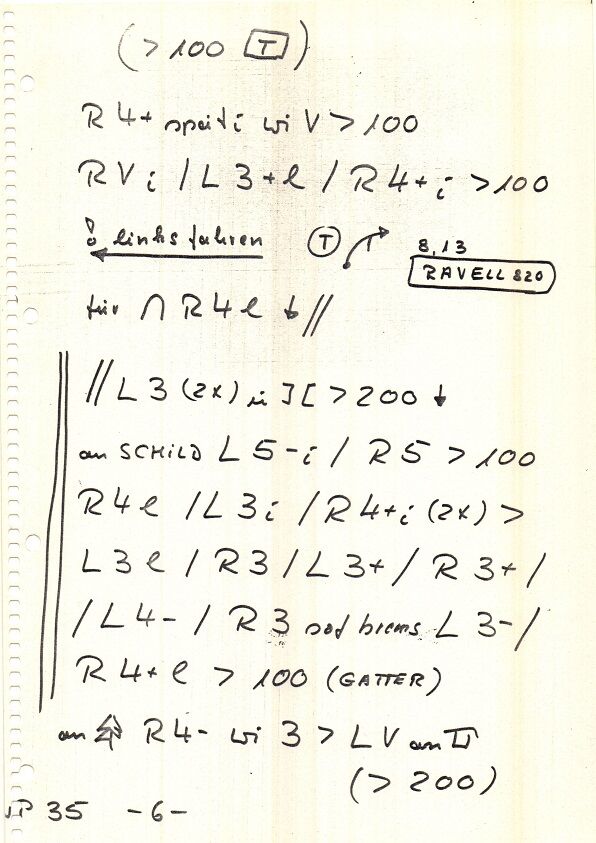 (> 100 T)
R 4+ spät i wi V > 100
R V i / L 3+ e / R 4+ i > 100
links fahren T 8,13
RAVELL 820
für ∩ R 4 e ↓ //
// L 3 (2x) in ][ > 200 ↓
an SCHILD L 5- i / R 5 > 100
R 4 e / L 3 i / R 4+ i (2x) >
L 3 e / R 3 / L 3+ / R 3+ /
/ L 4- / R 3 L 3- /
R 4+ e > 100 (GATTER)
an R 4- wi 3 > L V an
(> 200)
35 -6-